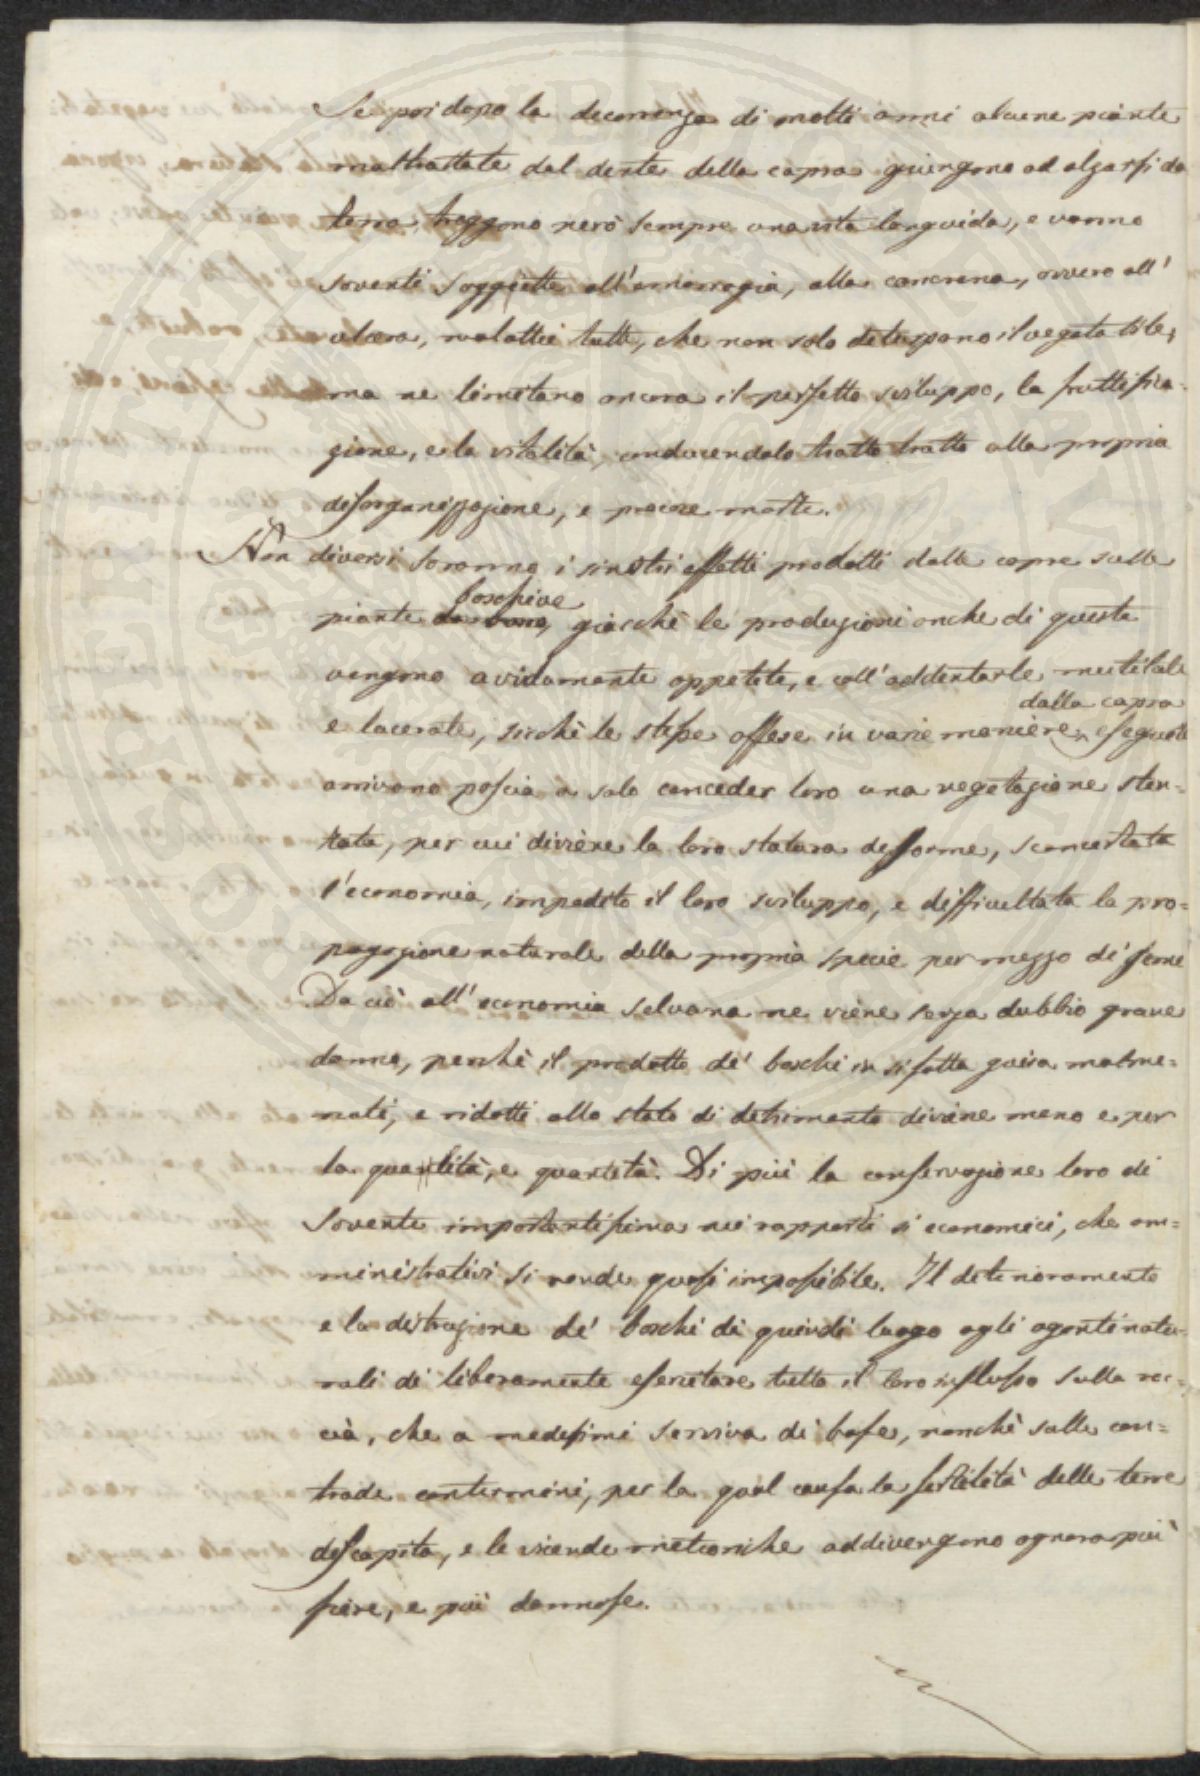 Se poi dopo la decorrenza di molti anni alcune piante
maltrattate dal dente della capra giungono ad alzarsi da
terra, traggono però sempre una vita languida, e vanno
soventi soggiette all'emorragia, alla cancrena, ovvero all'
ulcera, malattie tutte, che non solo deturpano il vegetabile,
ma ne limitano ancora il perfetto sviluppo, la fruttifica-
zione, e la vitalità, conducendolo tratto tratto alla propria
disorganizzazione, e precoce morte.
Non diversi saranno i sinistri effetti prodotti dalle capre sulle
boschive
piante giacchè le produzioni anche di queste
vengono avidamente appetite, e coll'addentarle mutilate
dalla capra
e lacerate, sicchè le stesse offese in varie maniere,
arrivano poscia a solo conceder loro una vegetazione sten-
tata, per cui diviene la loro statura defforme, sconcertata
l'economia, impedito il loro sviluppo, e difficultata la pro-
pagazione naturale della propria specie per mezzo di seme
Da ciò all'economia selvana ne viene senza dubbio grave
danno, perchè il prodotto de' boschi in sifatta guisa malme-
nati, e ridotti allo stato di detrimento diviene meno e per
la qualità, e quantità. Di più la conservazione loro di
sovente importantissima nei rapporti sì economici, che am-
ministrativi si rende quasi impossibile. Il deterioramento
e la distruzione de' boschi dà quindi luogo agli agenti natu-
rali di liberamente esercitare tutto il loro influsso sulla roc-
cia, che a medesimi serviva di base, nonchè sulle con-
trade contermini, per la qual causa la fertilità delle terre
discapita, e le vicende meteoriche addivengono ognora più
fiere, e più dannose.